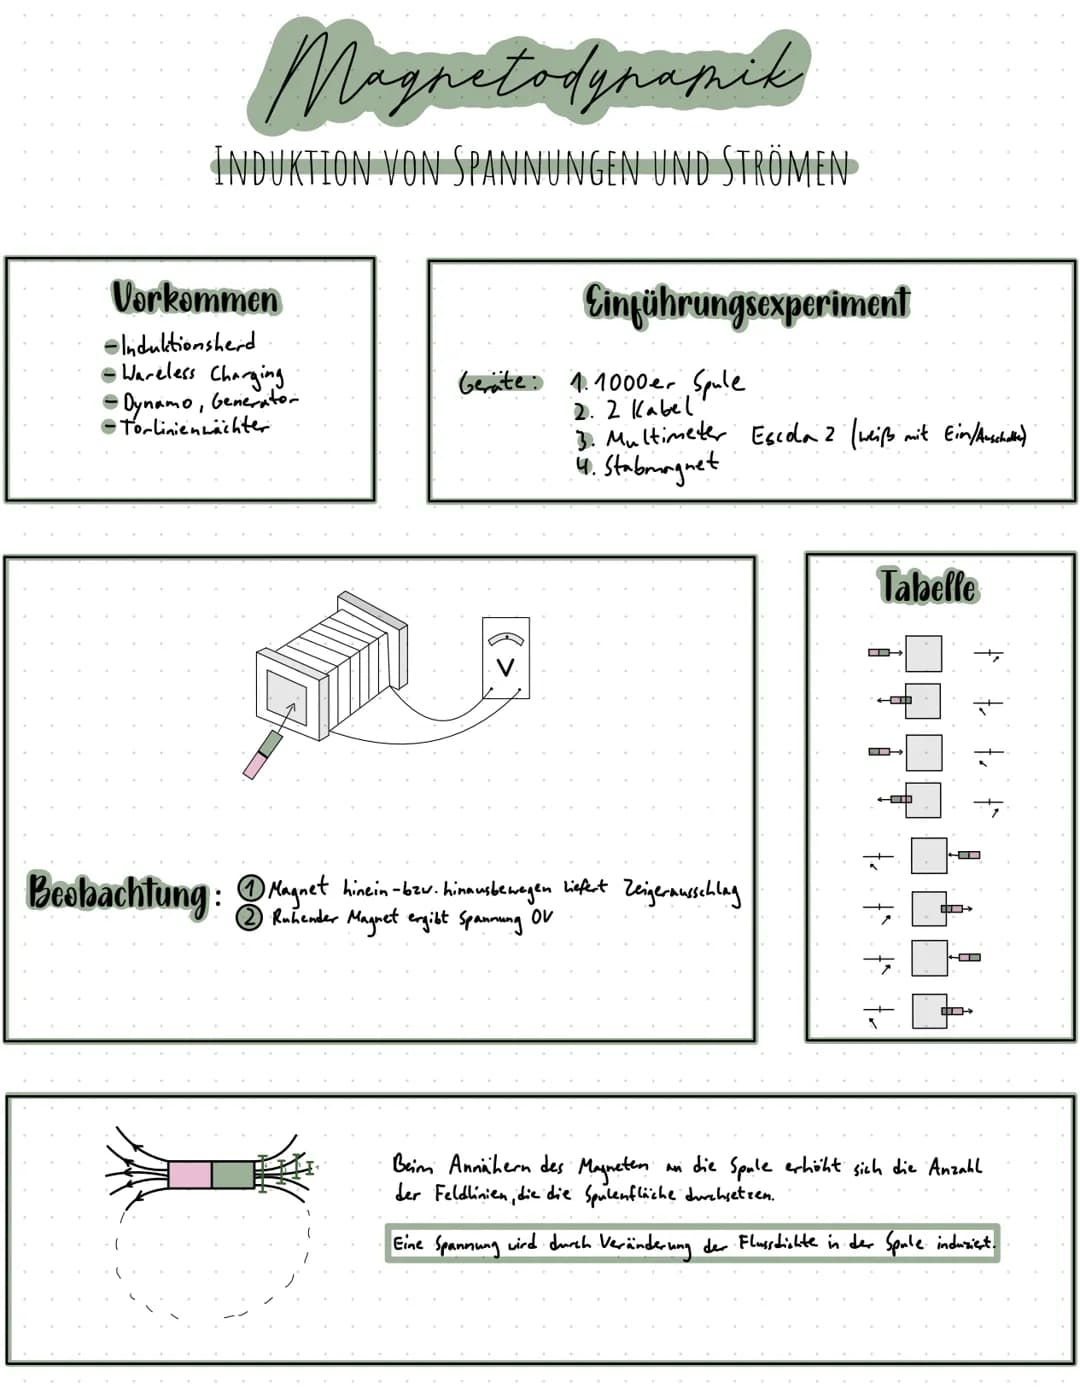 Magnetodynamik
INDUKTION VON SPANNUNGEN UND STRÖMEN
Vorkommen
- Induktionsherd
- Wareless Charging
- Dynamo, Generator
- Torlinienwächter
Einführungsexperiment
Geräte: 1. 1000er Spule
2. 2 Kabel
3. Multimeter Escola 2 (weiß mit Ein/Ausschalter)
4. Stabmagnet
V
Beobachtung: 1 Magnet hinein-bzw. hinausbewegen liefert Zeigerausschlag
2 Ruhender Magnet ergibt Spannung 0V
Tabelle
Beim Annähern des Magneten an die Spule erhöht sich die Anzahl
der Feldlinien, die die Spulenfläche durchsetzen.
Eine Spannung wird durch Veränderung der Flussdichte in der Spule induziert.